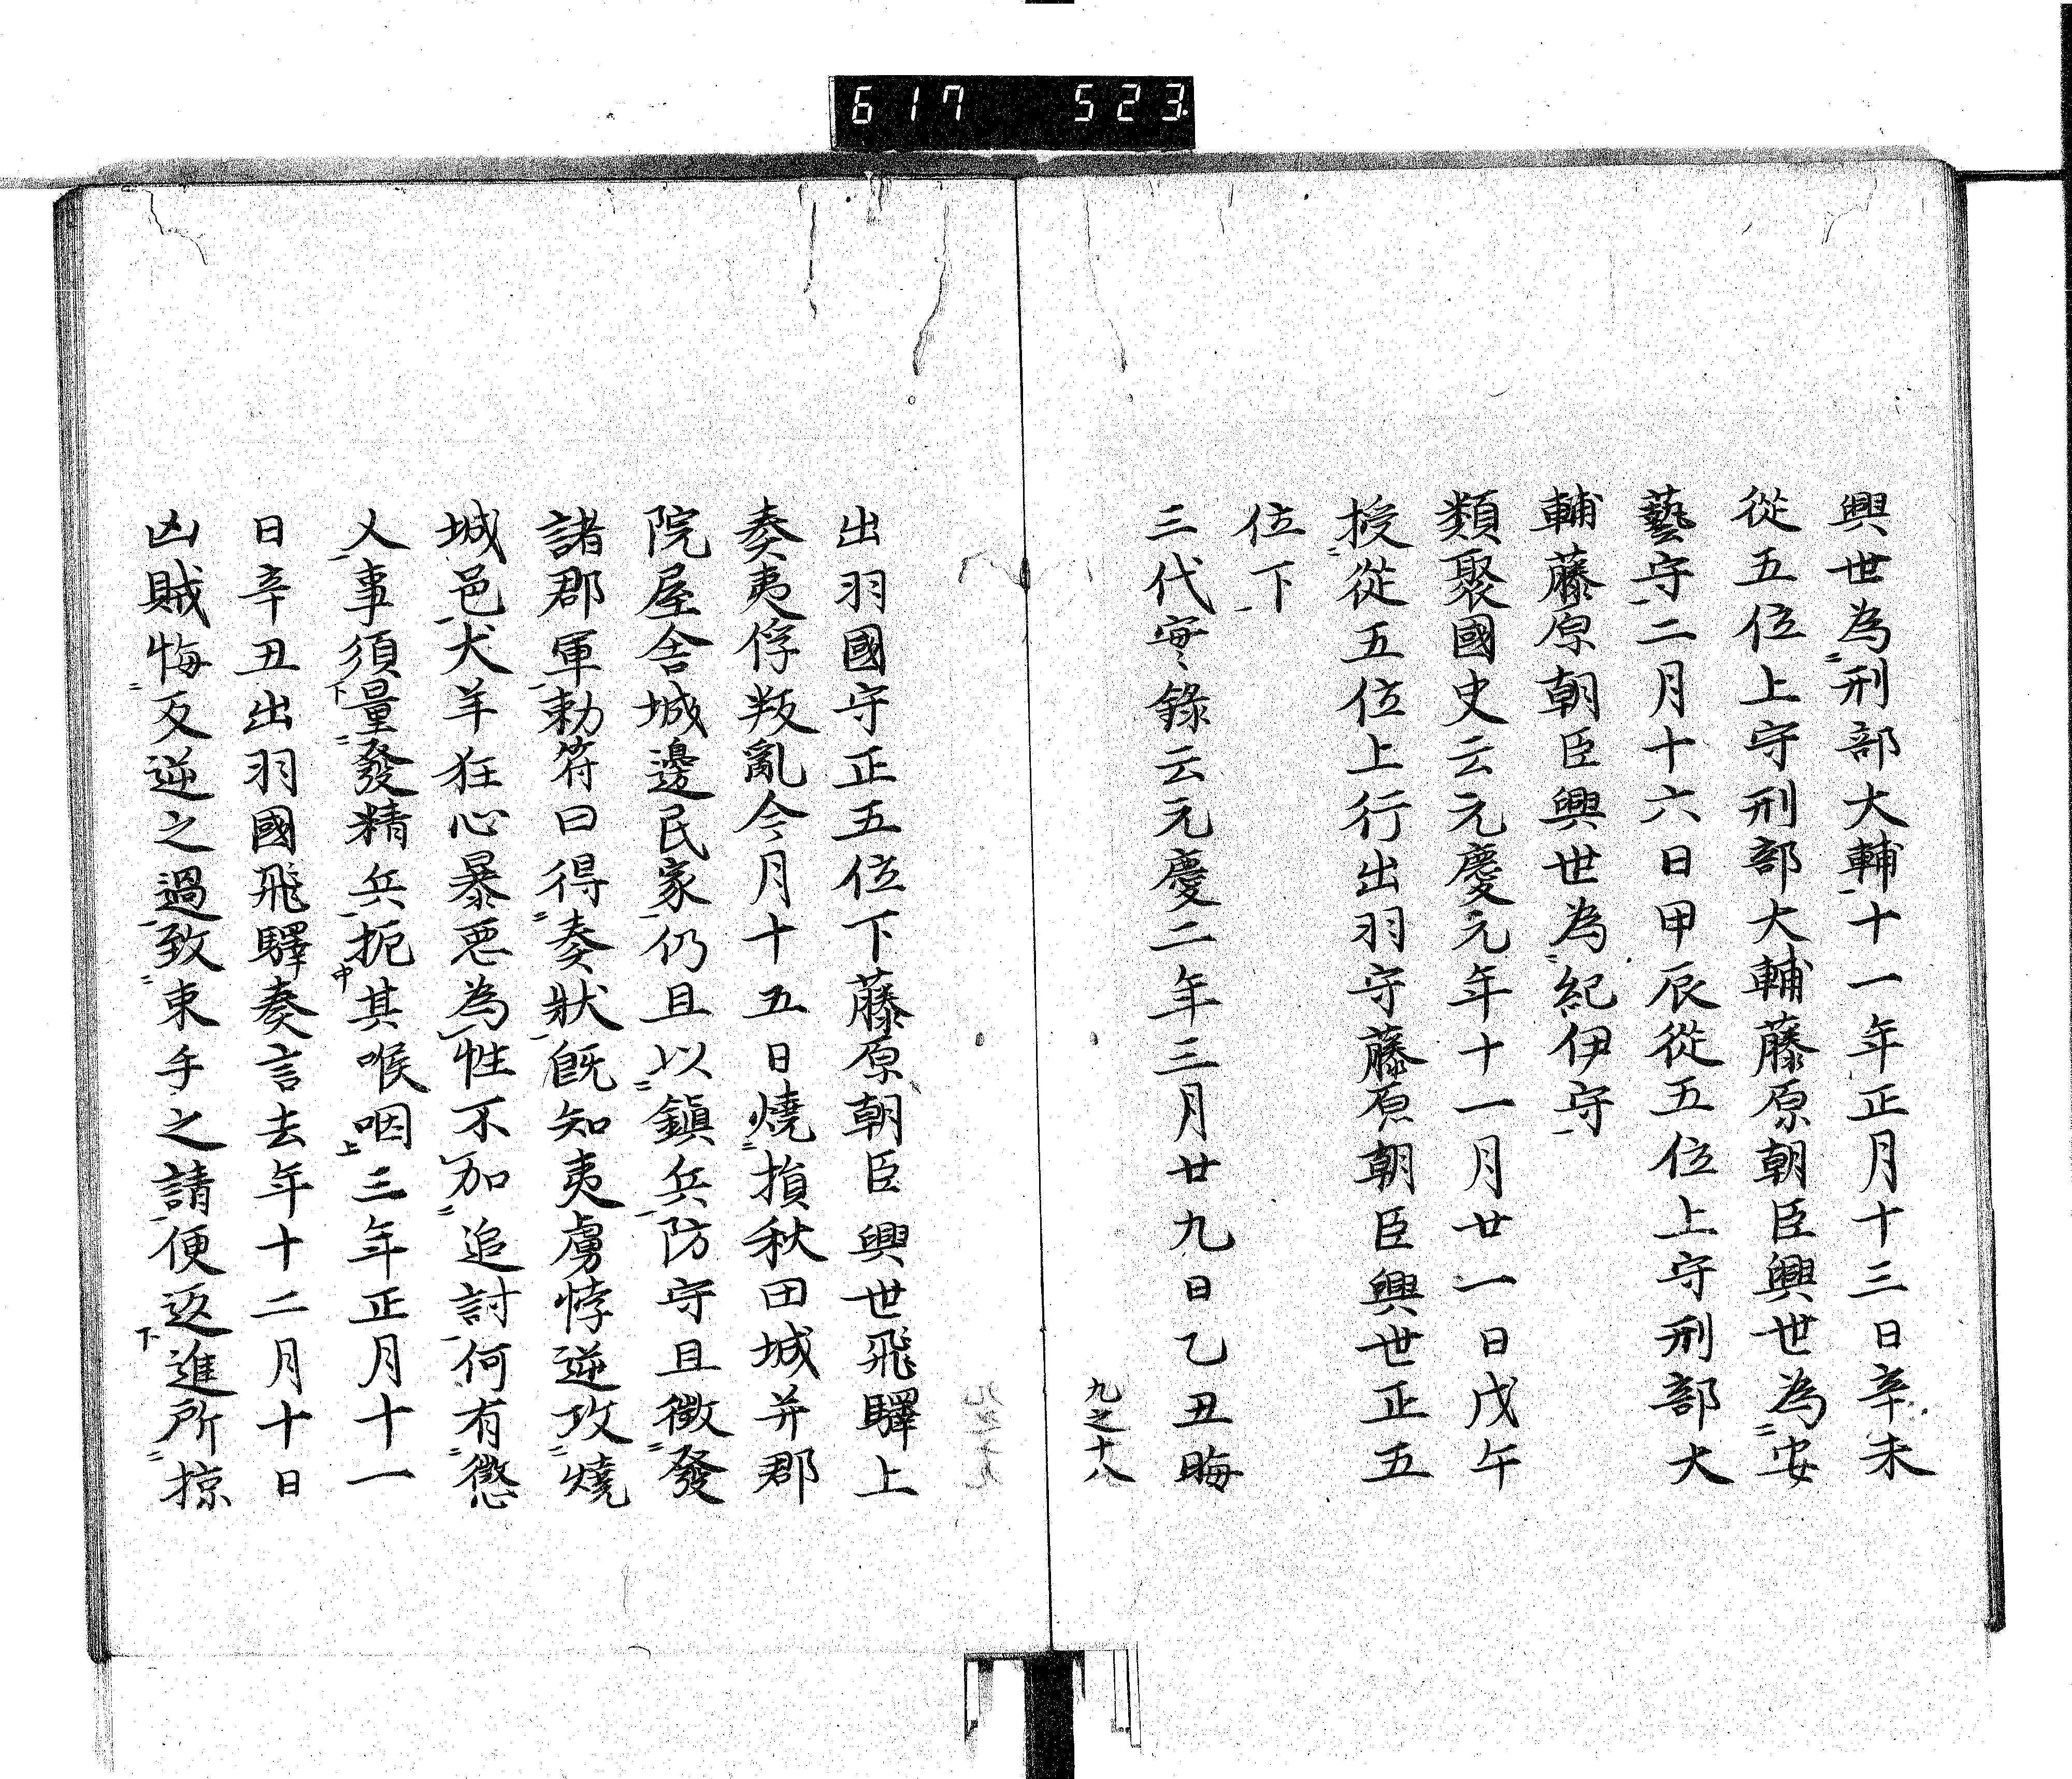 617 523
興世為刑部大輔十一年正月十三日辛未
從五位上守刑部大輔藤原朝臣興世為安
藝守二月十六日甲辰從五位上守刑部大
輔藤原朝臣興世為紀伊守
類聚國史云元慶元年十一月廿一日戊午
授從五位上行出羽守藤原朝臣興世正五
位下
三代実錄云元慶二年三月廿九日乙丑晦
九之十八
出羽國守正五位下藤原朝臣興世飛驛上
奏夷俘叛亂今月十五日燒損秋田城并郡
院屋舍城邊民家仍且以鎮兵防守且徵發
諸郡軍勅符曰得奏狀既知夷虜悖逆攻燒
城邑犬羊狂心暴惡為性不加追討何有懲
乂事須量發精兵扼其喉咽三年正月十一
日辛丑出羽國飛驛奏言去年十二月十日
凶賊悔反逆之過致束手之請便返進所掠